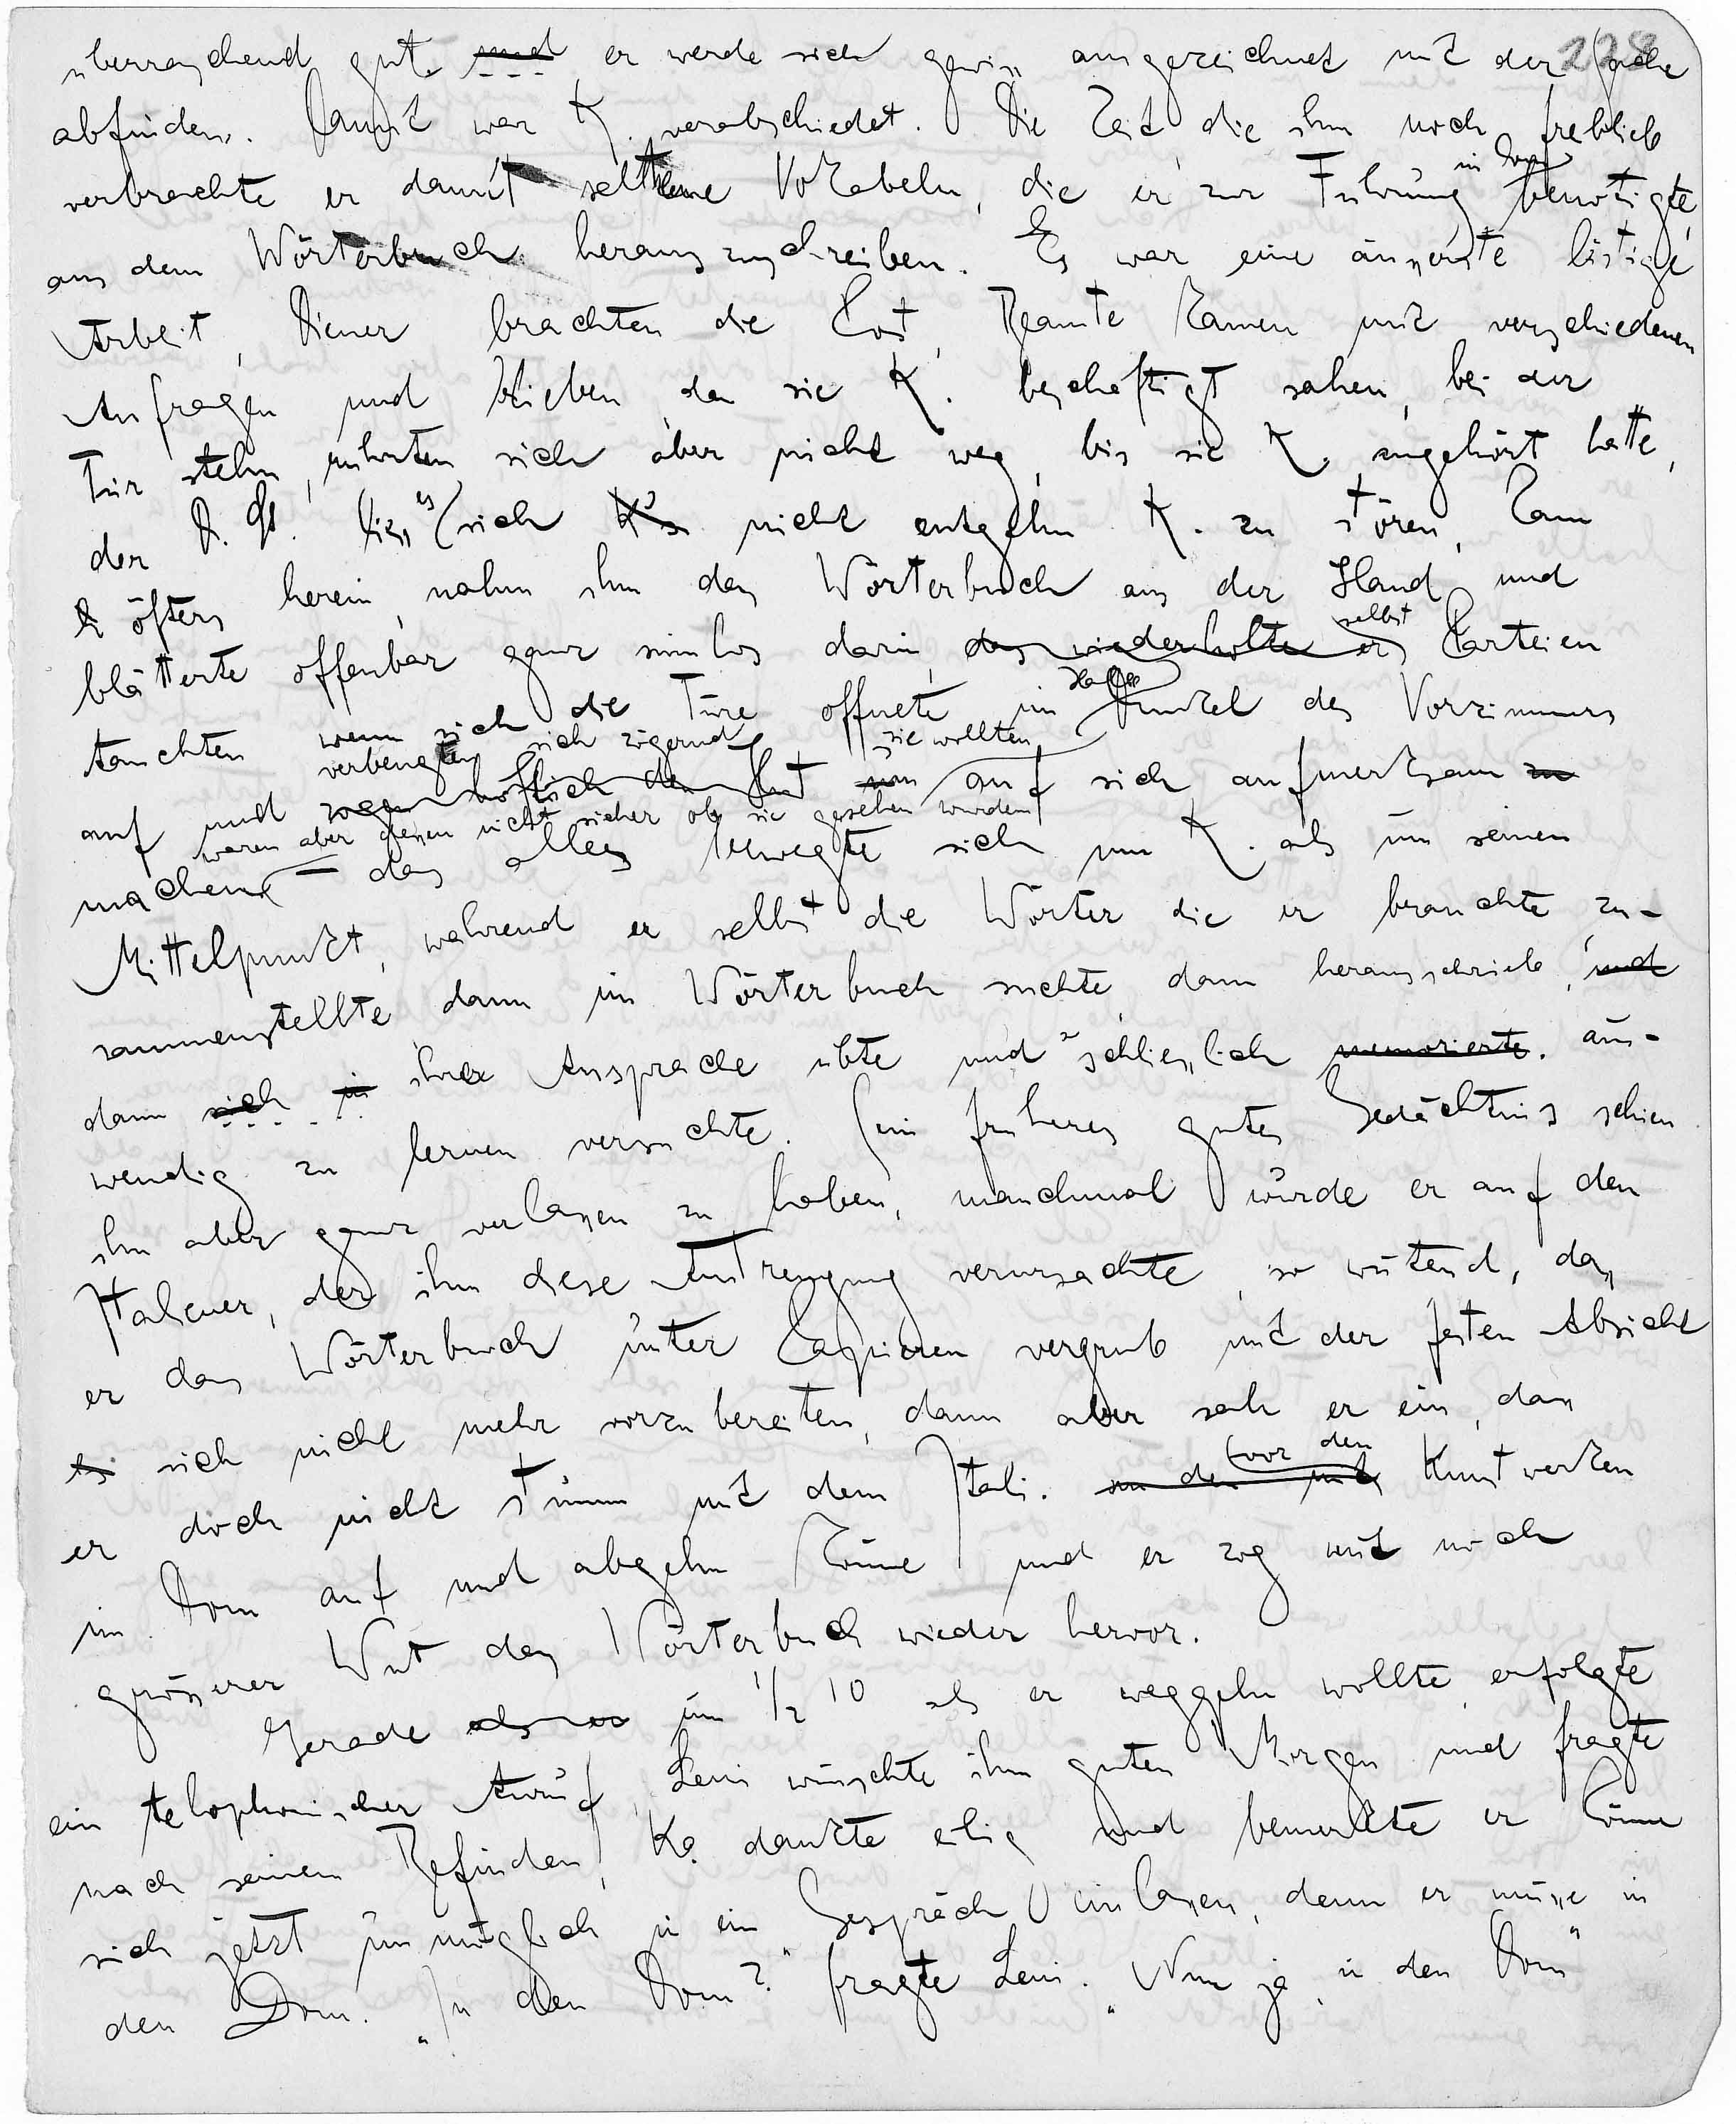 228
überraschend gut. und er werde sich gewiss ausgezeichnet mit der Sache
abfinden. Damit war K. verabschiedet. Die Zeit die ihm noch freiblieb
verbrachte er damit seltene Vokabeln, die er zur Führung im Dom benötigte,
aus dem Wörterbuch herauszuschreiben. Es war eine äusserste lästige
Arbeit, Diener brachten die Post, Beamte kamen mit verschiedenen
Anfragen und blieben, da sie K. beschäftigt sahen, bei der
Tür stehn, rührten sich aber nicht weg, bis sie K. angehört hatte,
der D. St. liess es sich nicht entgehn K. zu stören, kam
öfters herein, nahm ihm das Wörterbuch aus der Hand und
blätterte offenbar ganz sinnlos darin, das wiederholte er selbst Parteien
tauchten wenn sich die Türe öffnete im Halb dunkel des Vorzimmers
auf und verbeugten sich zögernd zogen höflich den Hut um sie wollten auf sich aufmerksam zu
machen waren aber dessen nicht sicher ob sie gesehen wurden – das alles bewegte sich um K. als um seinen
Mittelpunkt, während er selbst die Wörter die er brauchte zu-
sammenstellte, dann im Wörterbuch suchte, dann herausschrieb, und
dann sich in ihrer Aussprache übte und schliesslich memorierte. aus-
wendig zu lernen versuchte. Sein früheres gutes Gedächtnis schien
ihn aber ganz verlassen zu haben, manchmal wurde er auf den
Italiener, der ihm diese Anstrengung verursachte, so wütend, dass
er das Wörterbuch unter Papieren vergrub mit der festen Absicht
sich nicht mehr vorzubereiten, dann aber sah er ein, dass
er doch nicht stumm mit dem Itali. vor den Kunstwerken
im Dom auf und abgehn könne und er zog mit noch
grösserer Wut das Wörterbuch wieder hervor.
Gerade als er um ½ 10 als er weggehn wollte, erfolgte
ein telephonischer Anruf, Leni wünschte ihm guten Morgen und fragte
nach seinem Befinden, K. dankte eilig und bemerkte er könne
sich jetzt unmöglich in ein Gespräch einlassen, denn er müsse in
den Dom. „In den Dom?" fragte Leni. „Nun ja, in den Dom"